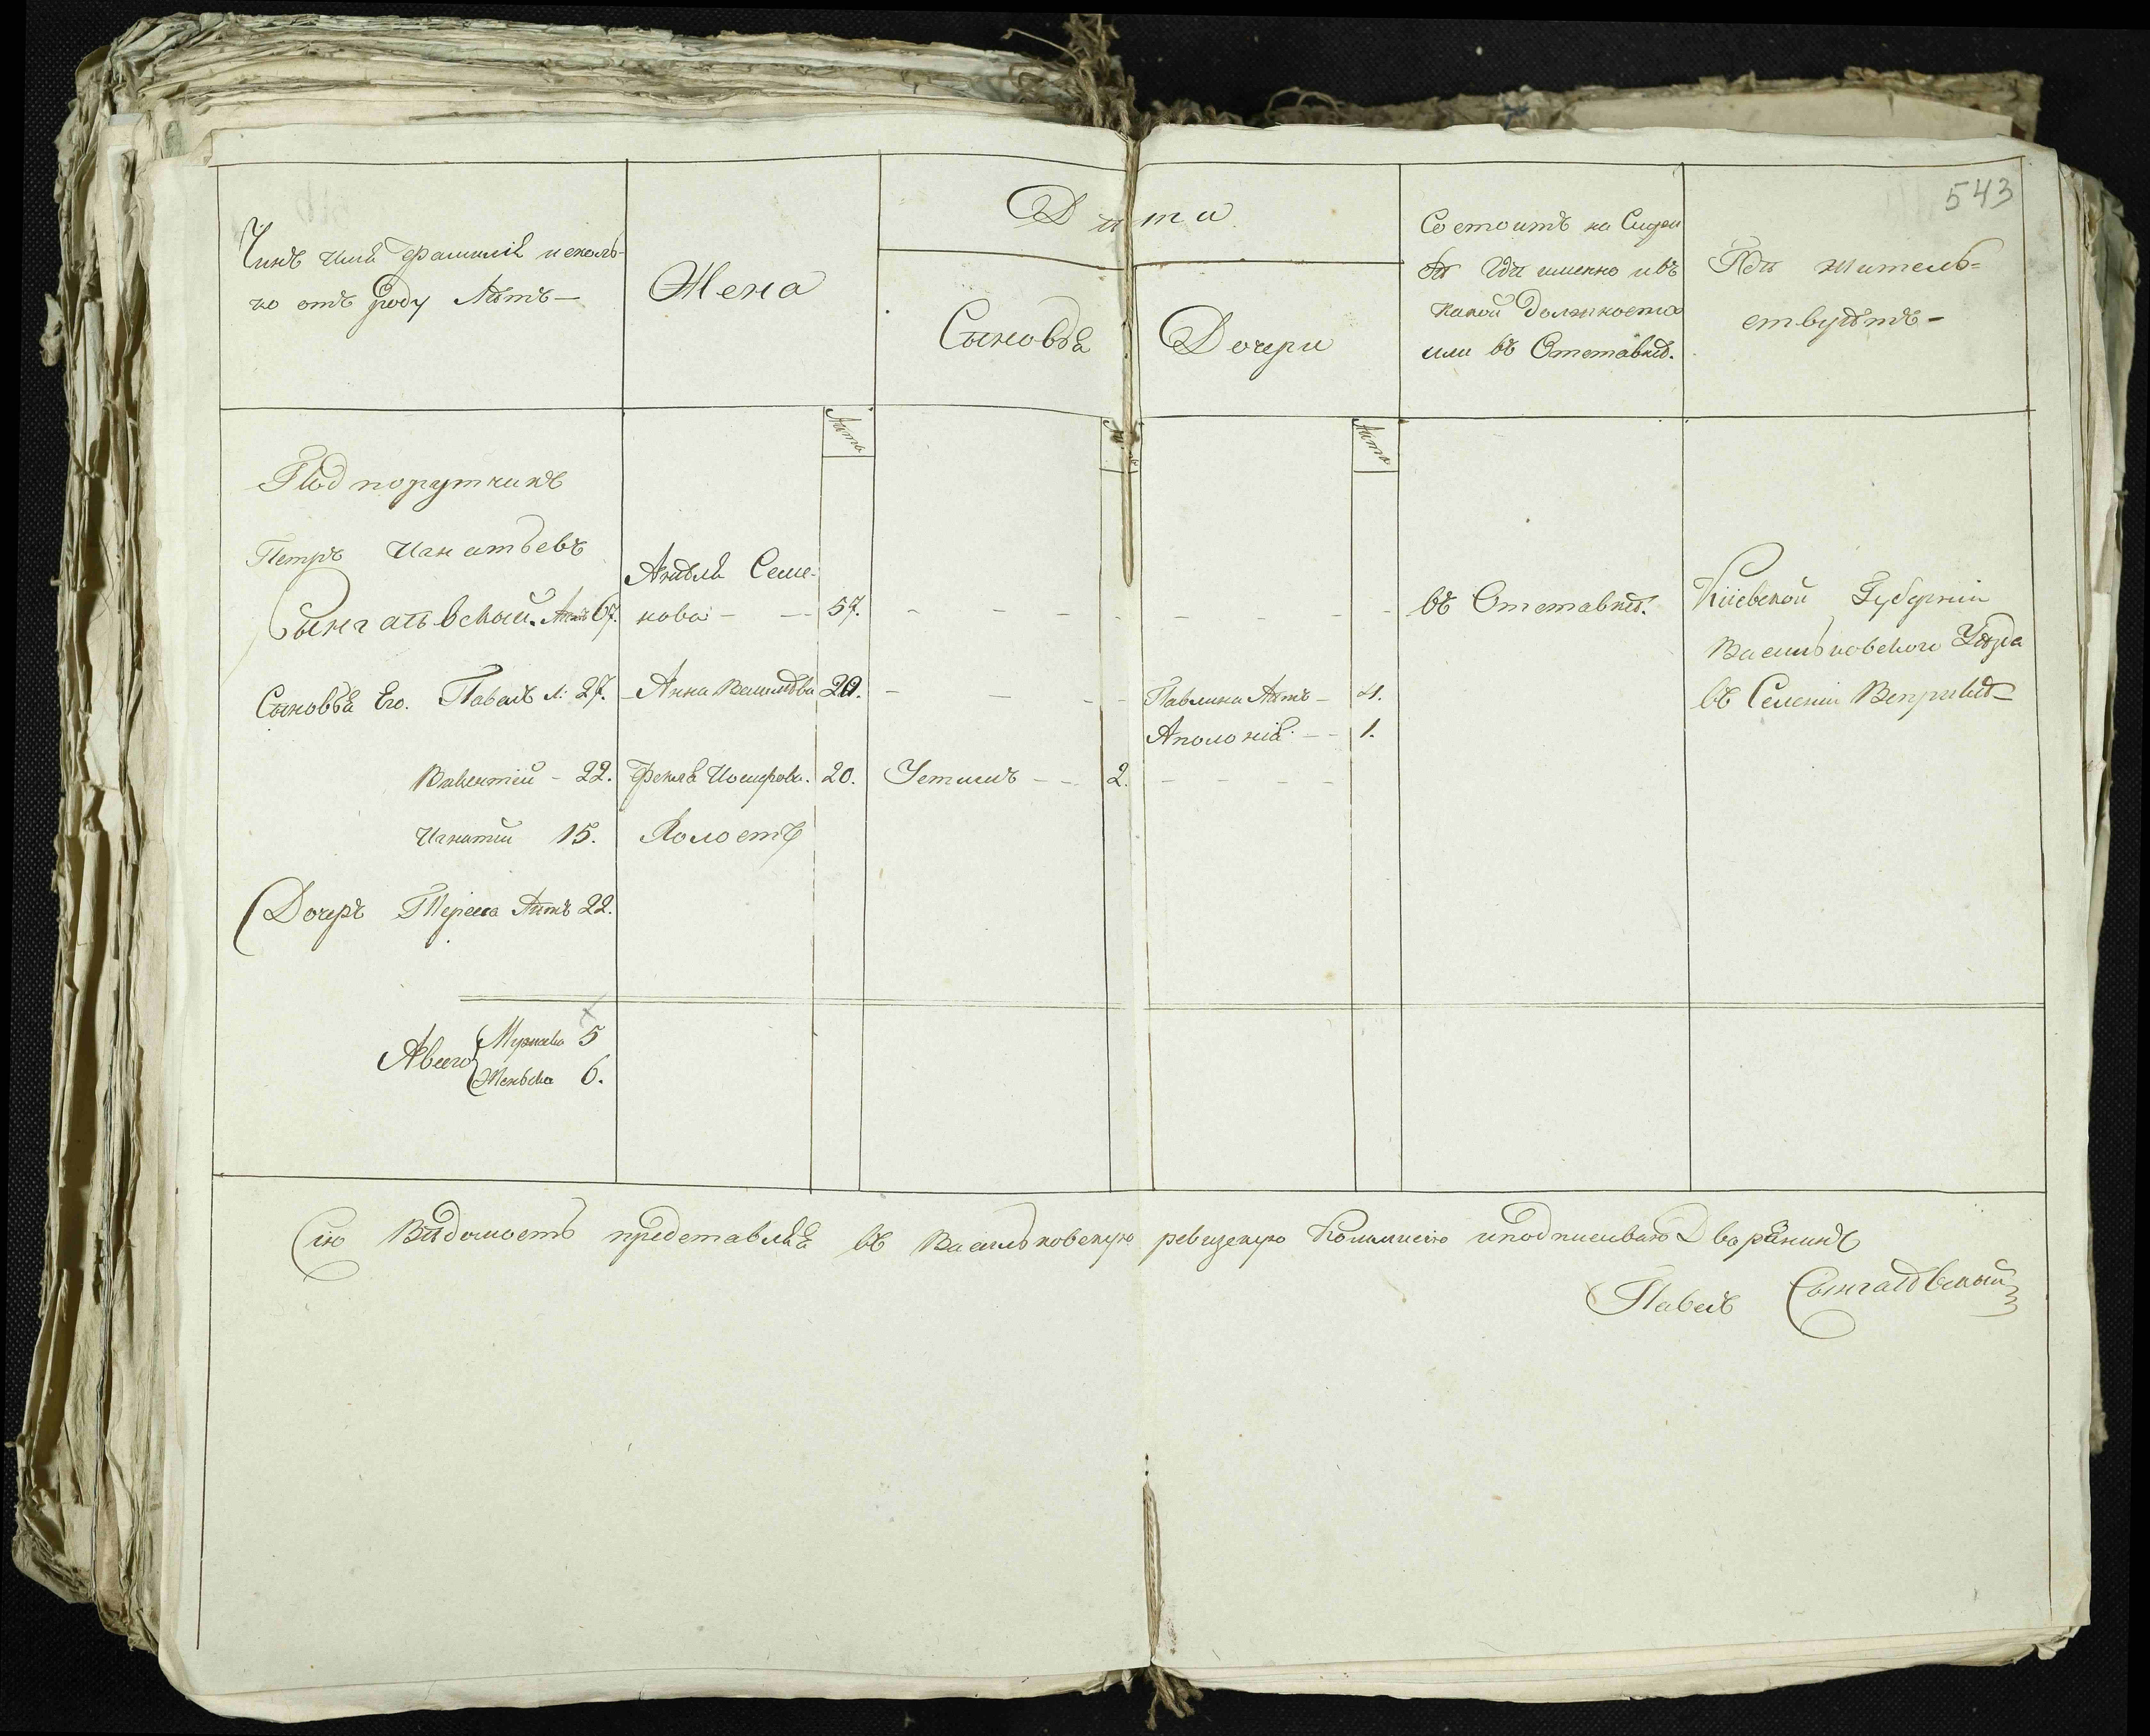 543
Чинъ имя Фамилія и сколь-
ко отъ роду Лѣтъ —
Жена
Дѣти
Сыновья
Дочери
Состоитъ на Службѣ
гдѣ имѣнно и въ
какой Должности
или въ Отставкѣ.
Гдѣ жительъ=
ствуѣтъ —
Лѣта
Лѣта
Лѣта
Подпорутчикъ
Петръ Игнатьевъ
Сынгаѣвский. Лѣтъ 67.
Анѣля Семе-
нова — — 57.
въ Отставкѣ.
Кіевской Губерніи
Васильковского Уѣзда
въ Селеніи Веприкѣ —
Сыновья Его. Павелъ л: 27. Анна 20. Павлина Лѣтъ — 4.
Аполонія — — 1.
Викентій — 22. Фекла Иосифова. 20. Устимъ — — 2.
Игнатій 15. Холостъ
Дочеръ Тереса Лѣтъ 22.
Авсего Мужеска 5
Женьска 6.
Сію Вѣдомость представляя въ Васильковскую ревизскую Коммисію и подписиваю Дворянинъ
Павелъ Сынгаѣвский